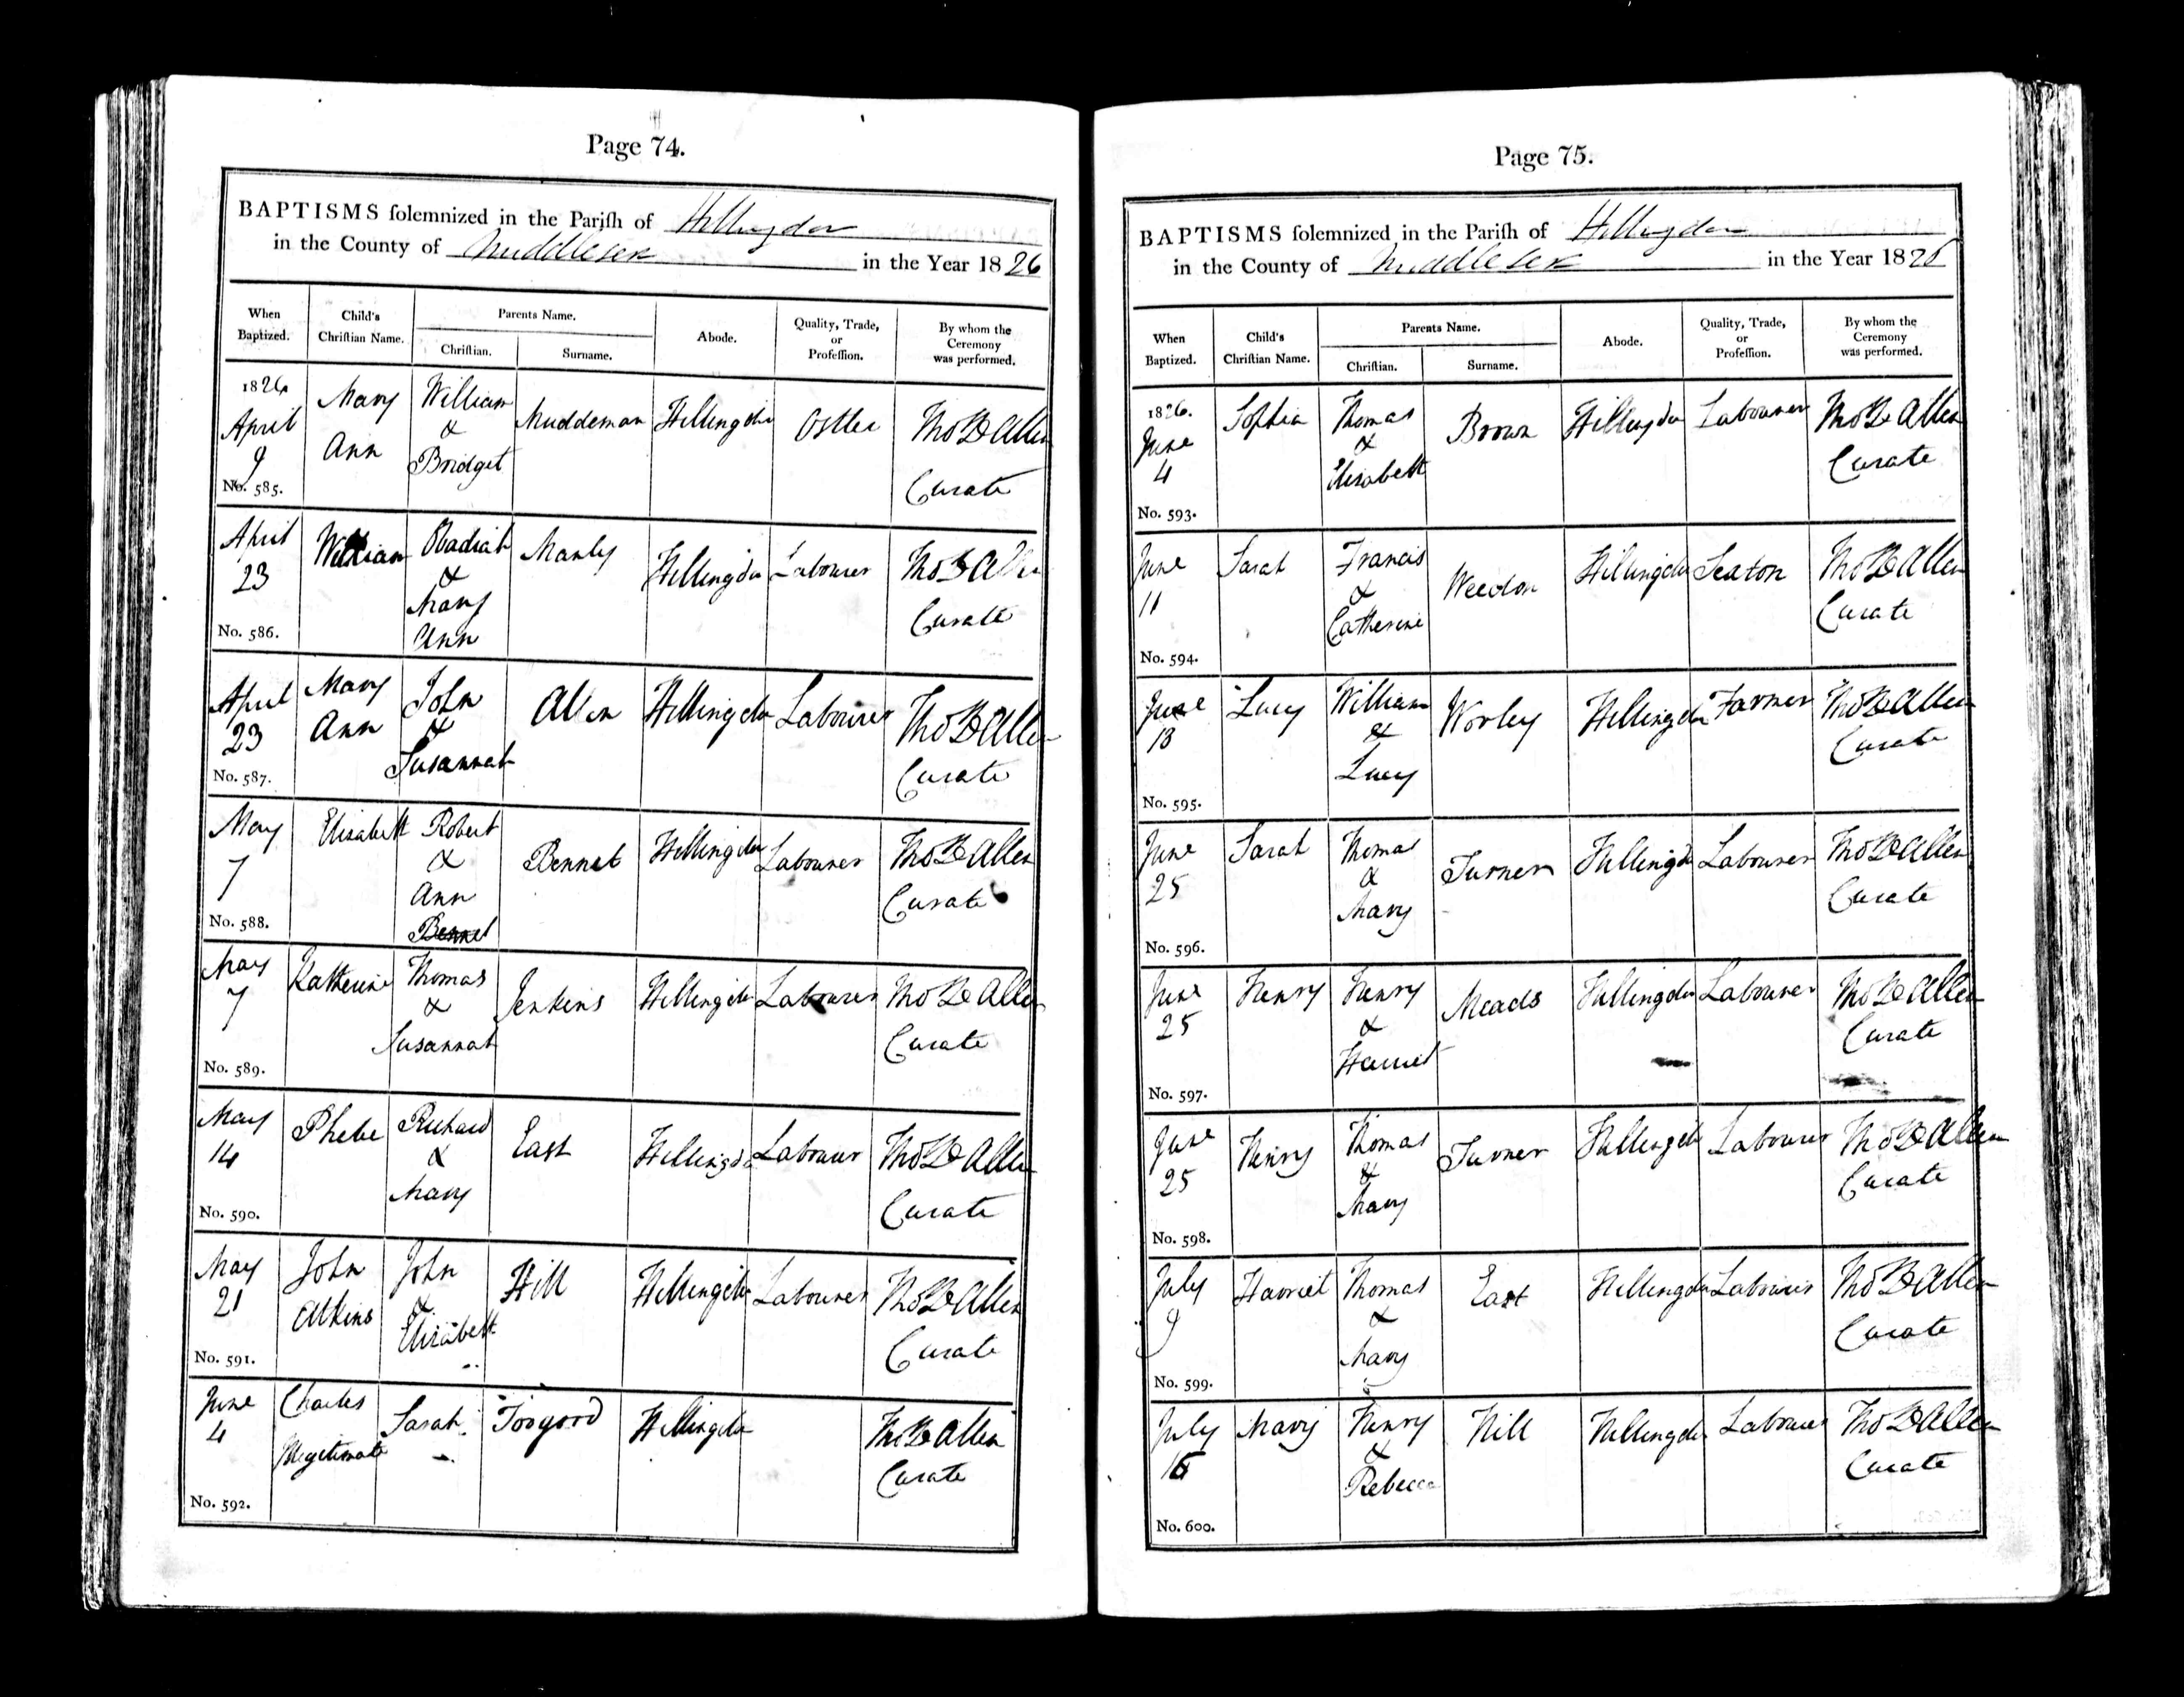 Page 74.
BAPTISMS solemnized in the Parish of Hillingdon
in the County of Middlesex in the Year 1826
When Baptized. Child's Christian Name. Parents Name. Christian. Surname. Abode. Quality, Trade, or Profession. By whom the Ceremony was performed.
1826 April 9 No. 585. Mary Ann William & Bridget Muddeman Hillingdon Ostler Thos B Allen Curate
April 23 No. 586. William Obadiah & Mary Ann Manly Hillingdon Labourer Thos B Allen Curate
April 23 No. 587. Mary Ann John & Susannah Allen Hillingdon Labourer Thos B Allen Curate
May 7 No. 588. Elizabeth Robert & Ann Bennet Bennet Hillingdon Labourer Thos B Allen Curate
May 7 No. 589. Katherine Thomas & Susannah Jenkins Hillingdon Labourer Thos B Allen Curate
May 14 No. 590. Phebe Richard & Mary East Hillingdon Labourer Thos B Allen Curate
May 21 No. 591. John Atkins John & Elizabeth Hill Hillingdon Labourer Thos B Allen Curate
June 4 No. 592. Charles Illegitimate Sarah Toogood Hillingdon Thos B Allen Curate
Page 75.
BAPTISMS solemnized in the Parish of Hillingdon
in the County of Middlesex in the Year 1826
When Baptized. Child's Christian Name. Parents Name. Christian. Surname. Abode. Quality, Trade, or Profession. By whom the Ceremony was performed.
1826. June 4 No. 593. Sophia Thomas & Elisabeth Brown Hillingdon Labourer Thos B Allen Curate
June 11 No. 594. Sarah Francis & Catherine Weedon Hillingdon Sexton Thos B Allen Curate
June 18 No. 595. Lucy William & Lucy Worley Hillingdon Farmer Thos B Allen Curate
June 25 No. 596. Sarah Thomas & Mary Turner Hillingdon Labourer Thos B Allen Curate
June 25 No. 597. Henry Henry & Harriet Meads Hillingdon Labourer Thos B Allen Curate
June 25 No. 598. Henry Thomas & Mary Turner Hillingdon Labourer Thos B Allen Curate
July 9 No. 599. Harriet Thomas & Mary East Hillingdon Labourer Thos B Allen Curate
July No. 600. Mary Henry & Rebecca Hill Hillingdon Labourer Thos B Allen Curate